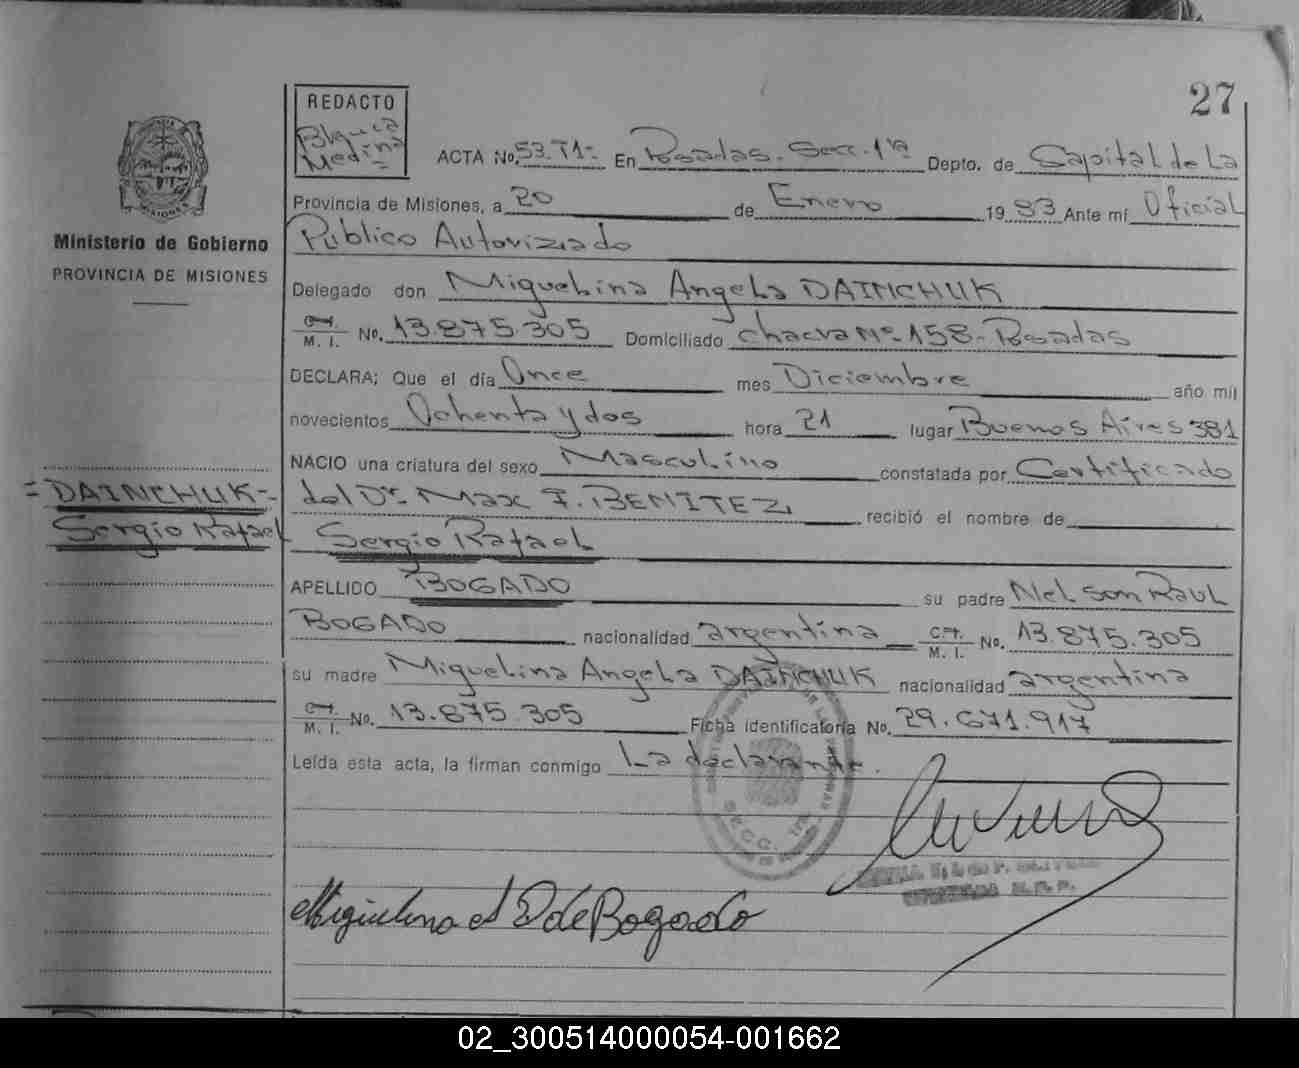 27
REDACTO
Medina
ACTA No. 53. T1- En Posadas. Secc. 1ra Depto. de Capital de La
Provincia de Misiones, a 20 de Enero 1983 Ante mí Oficial
Público Autorizado
Ministerio de Gobierno
PROVINCIA DE MISIONES
Delegado don Miguelina Angela DAINCHUK
M. I. No. 13.875.305 Domiciliado chacra Nº 158- Posadas
DECLARA; Que el día Once mes Diciembre año mil
novecientos Ochenta y dos hora 21 lugar Buenos Aires 381
NACIO una criatura del sexo Masculino constatada por Certificado
del Dr. Max F. BENITEZ, recibió el nombre de
=DAINCHUK=
Sergio Rafael
Sergio Rafael
APELLIDO BOGADO su padre Nelson Raul
BOGADO nacionalidad argentina M. I. No. 13.875.305
su madre Miguelina Angela DAINCHUK nacionalidad argentina
M. I. No. 13.875.305 Ficha identificatoria No. 29.671.917
Leída esta acta, la firman conmigo La declarante.
SECC. 1ra
Miguelina A D de Bogado
02_300514000054-001662